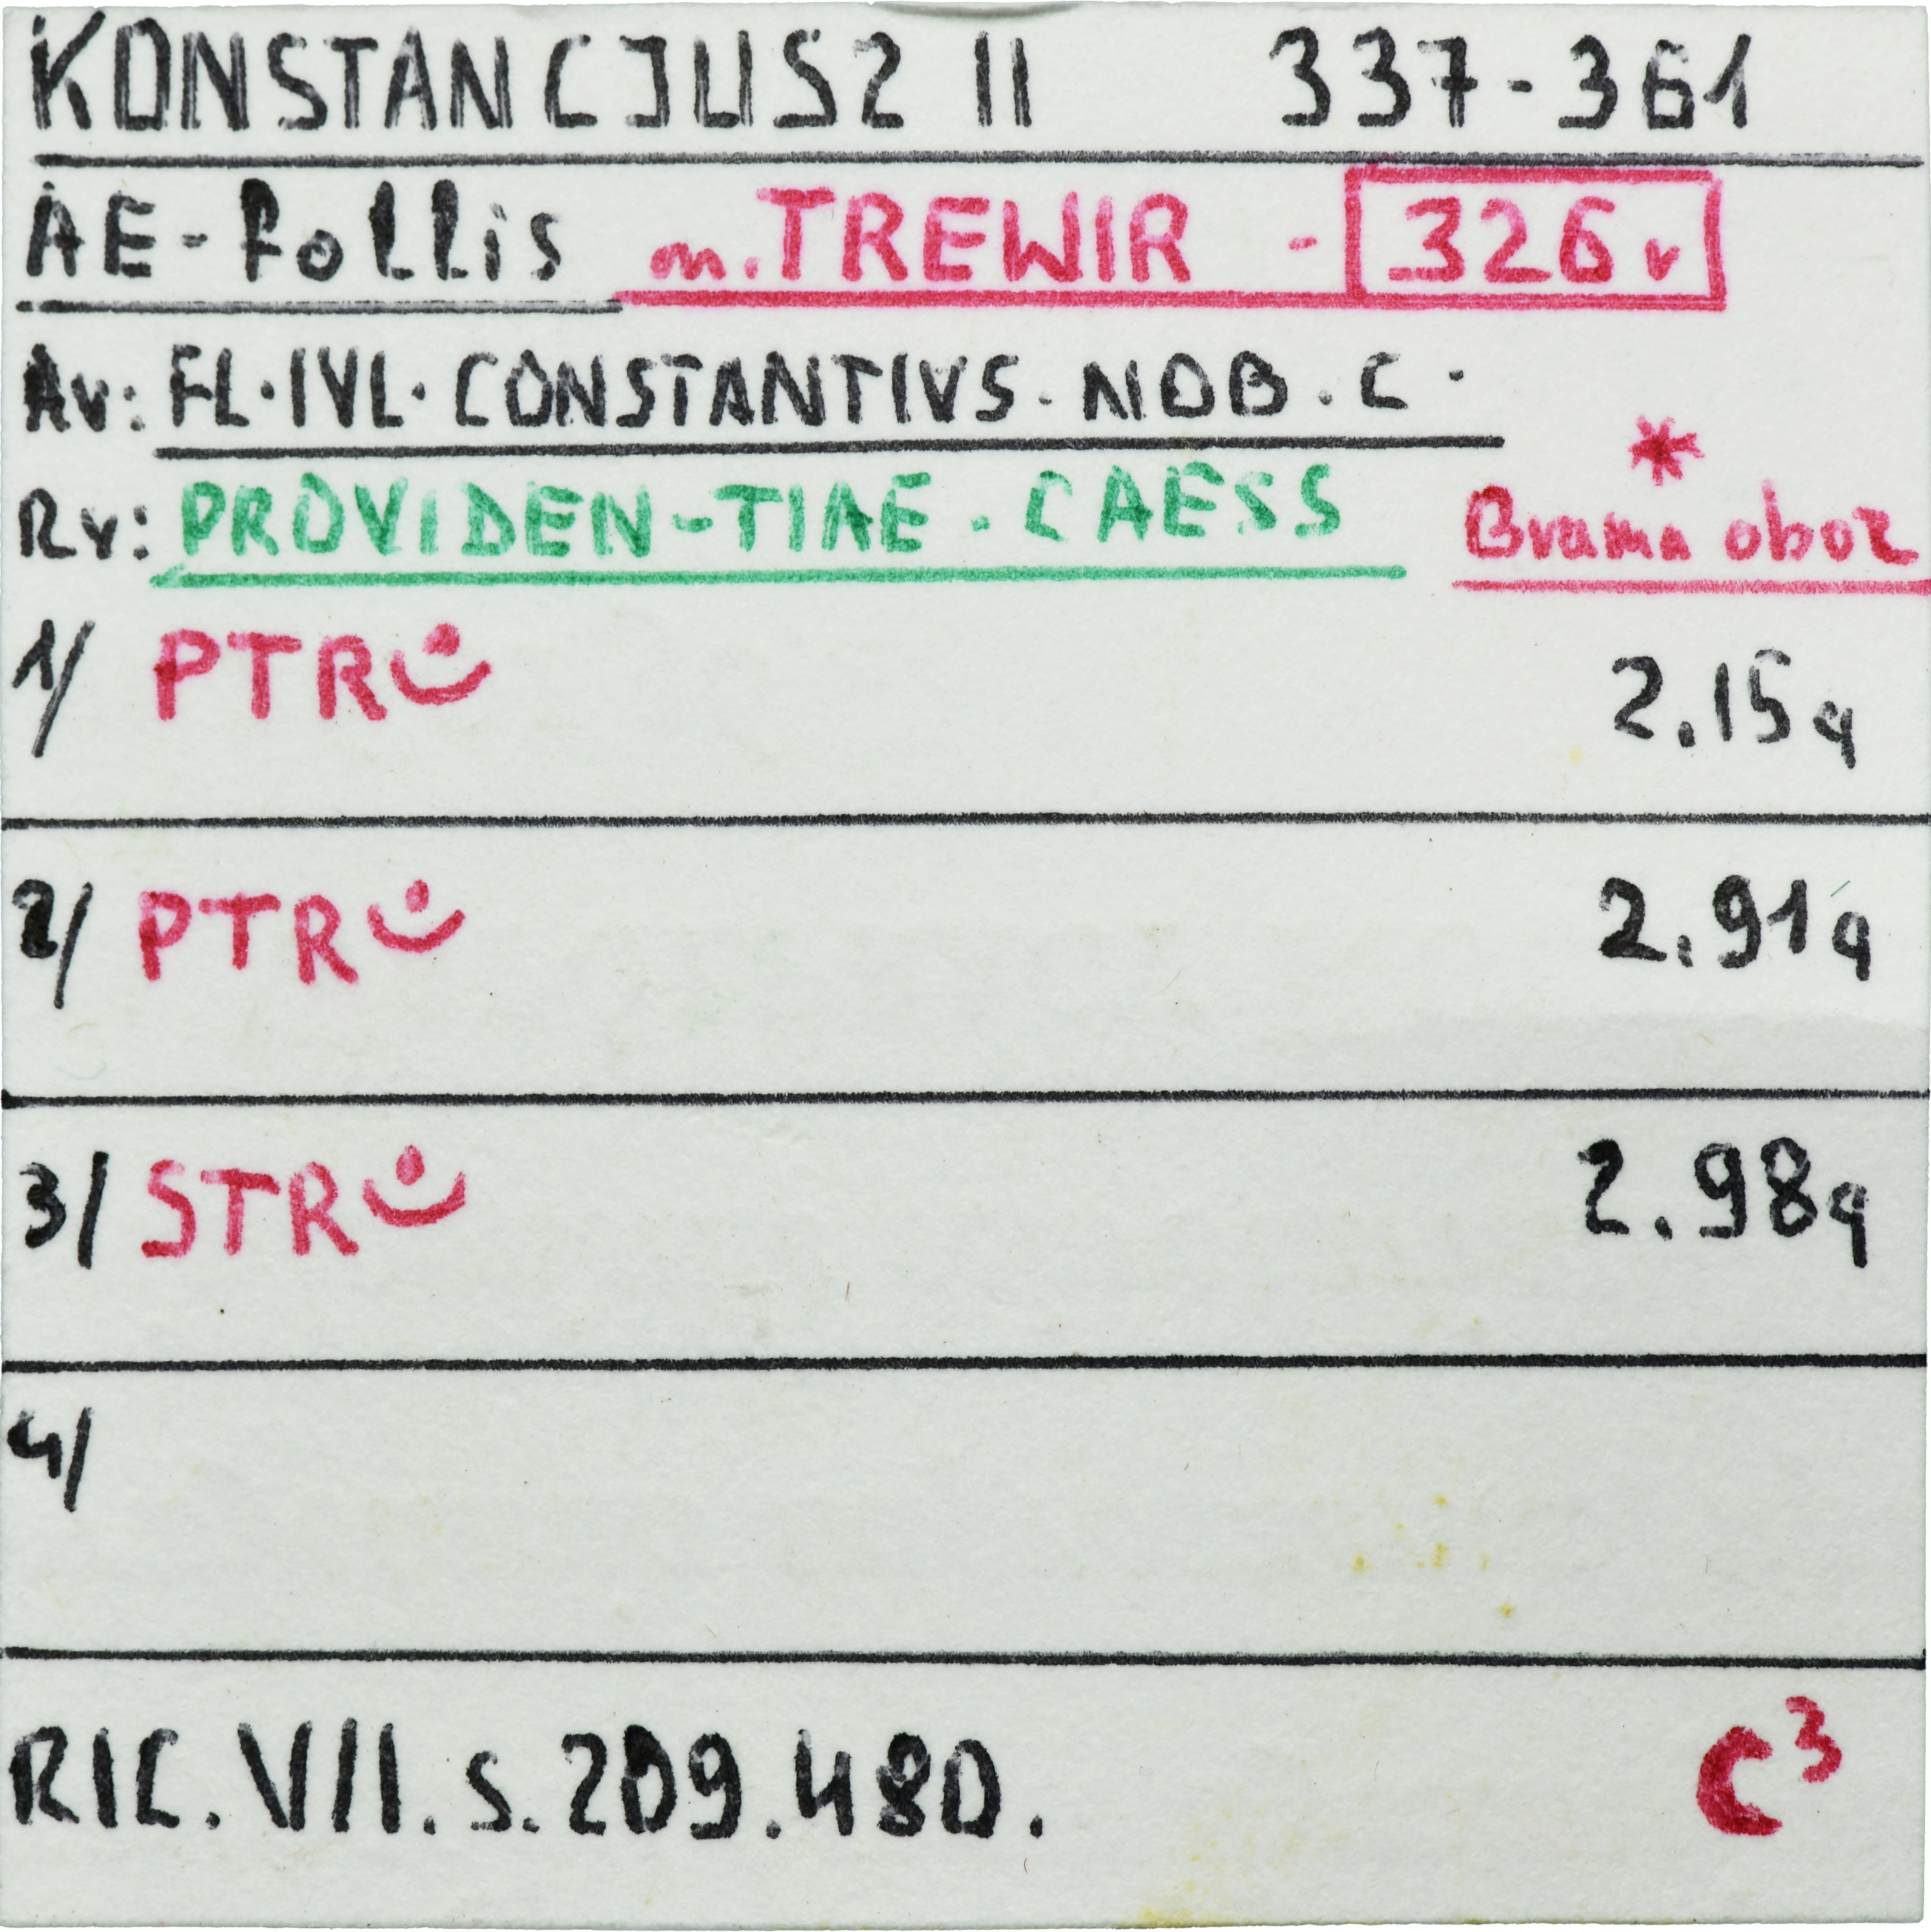 KONSTANCJUSZ II 337-361
AE-Follis m. TREWIR - 326 r
Av: FL·IVL·CONSTANTIVS·NOB·C·
*
Rv: PROVIDEN-TIAE·CAESS Brama oboz
1/ PTR 2.15g
2/ PTR 2.91g
3/ STR 2.98g
4/
RIC.VII.s.209.480. C³